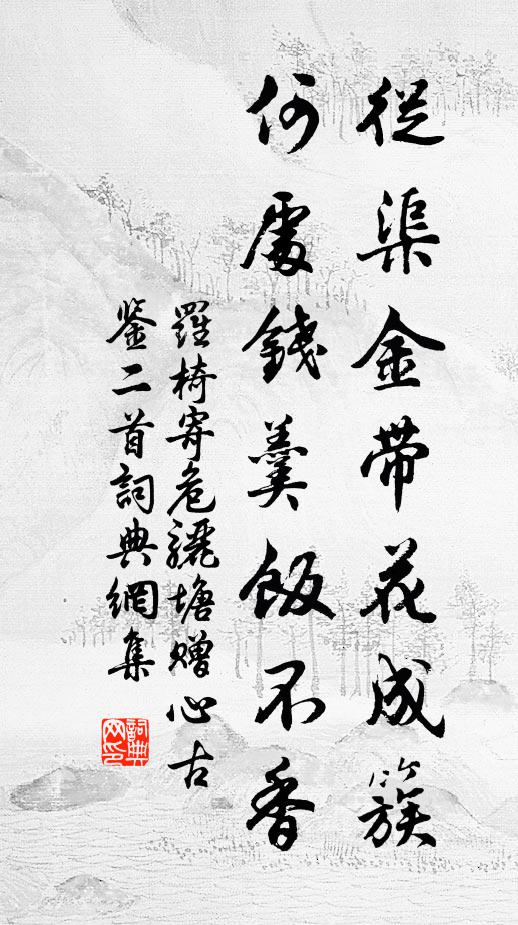 從渠金帶花成簇
何處錢羹飯不香
羅椅寄危驪塘贈心古
鉴二首詞典網集
詞典
网印